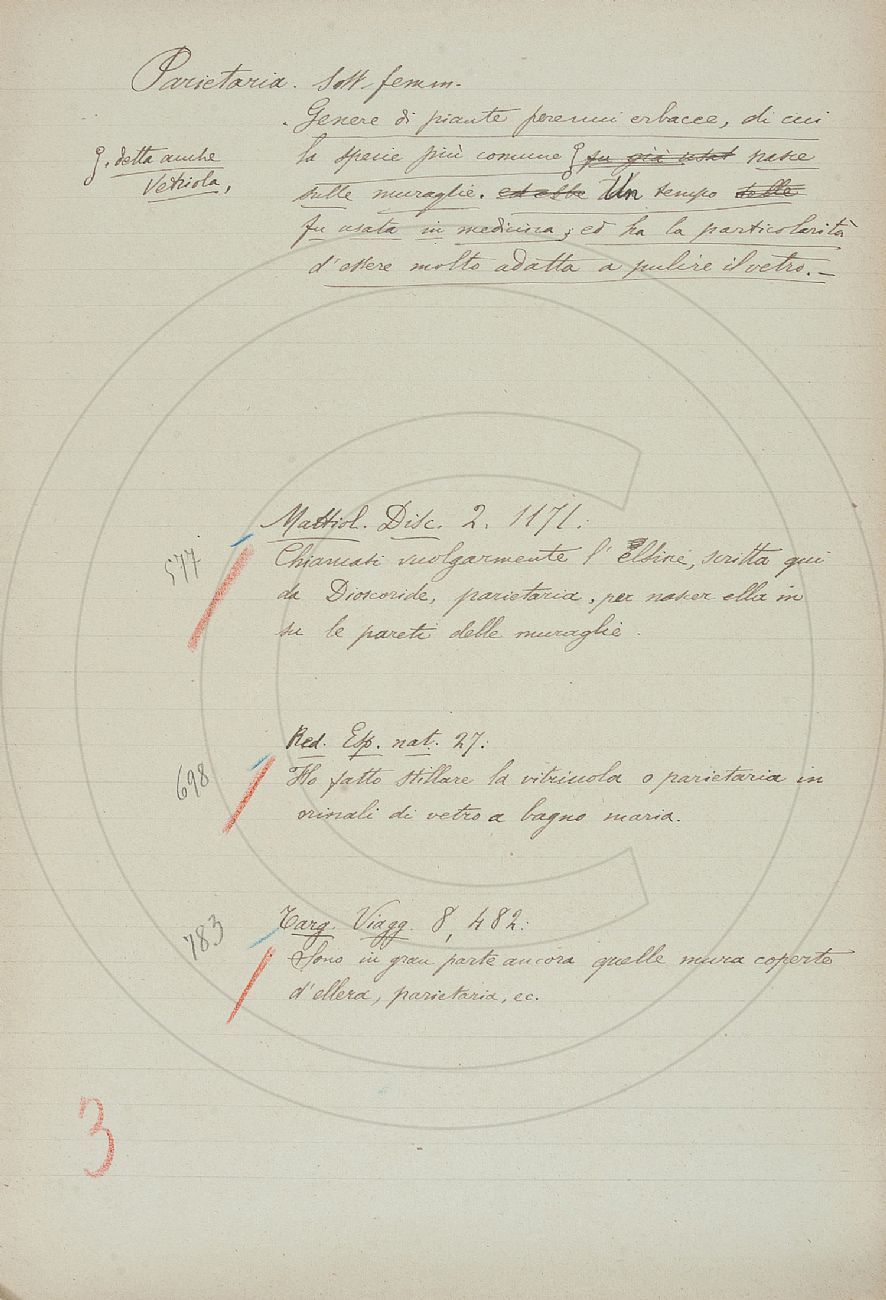 Parietaria. Sost. femm.
Genere di piante perenni erbacce, di cui
la specie più comune fu già usat nasce
, detta anche
Vetriola,
sulle muraglie. ed ebbe Un tempo
fu usata in medicina; ed ha la particolarità
d'essere molto adatta a pulire il vetro. –
Mattiol. Disc. 2. 1171:
577
Chiamasi vuolgarmente l' elsine, scritta qui
da Dioscoride, parietaria, per nascer ella in
su le pareti delle muraglie.
Red. Esp. nat. 27:
698
Ho fatto stillare la vitriuola o parietaria in
orinali di vetro a bagno maria.
Targ. Viagg. 8, 482:
783
Sono in gran parte ancora quelle mura coperte
d'ellera, parietaria, ec.
3